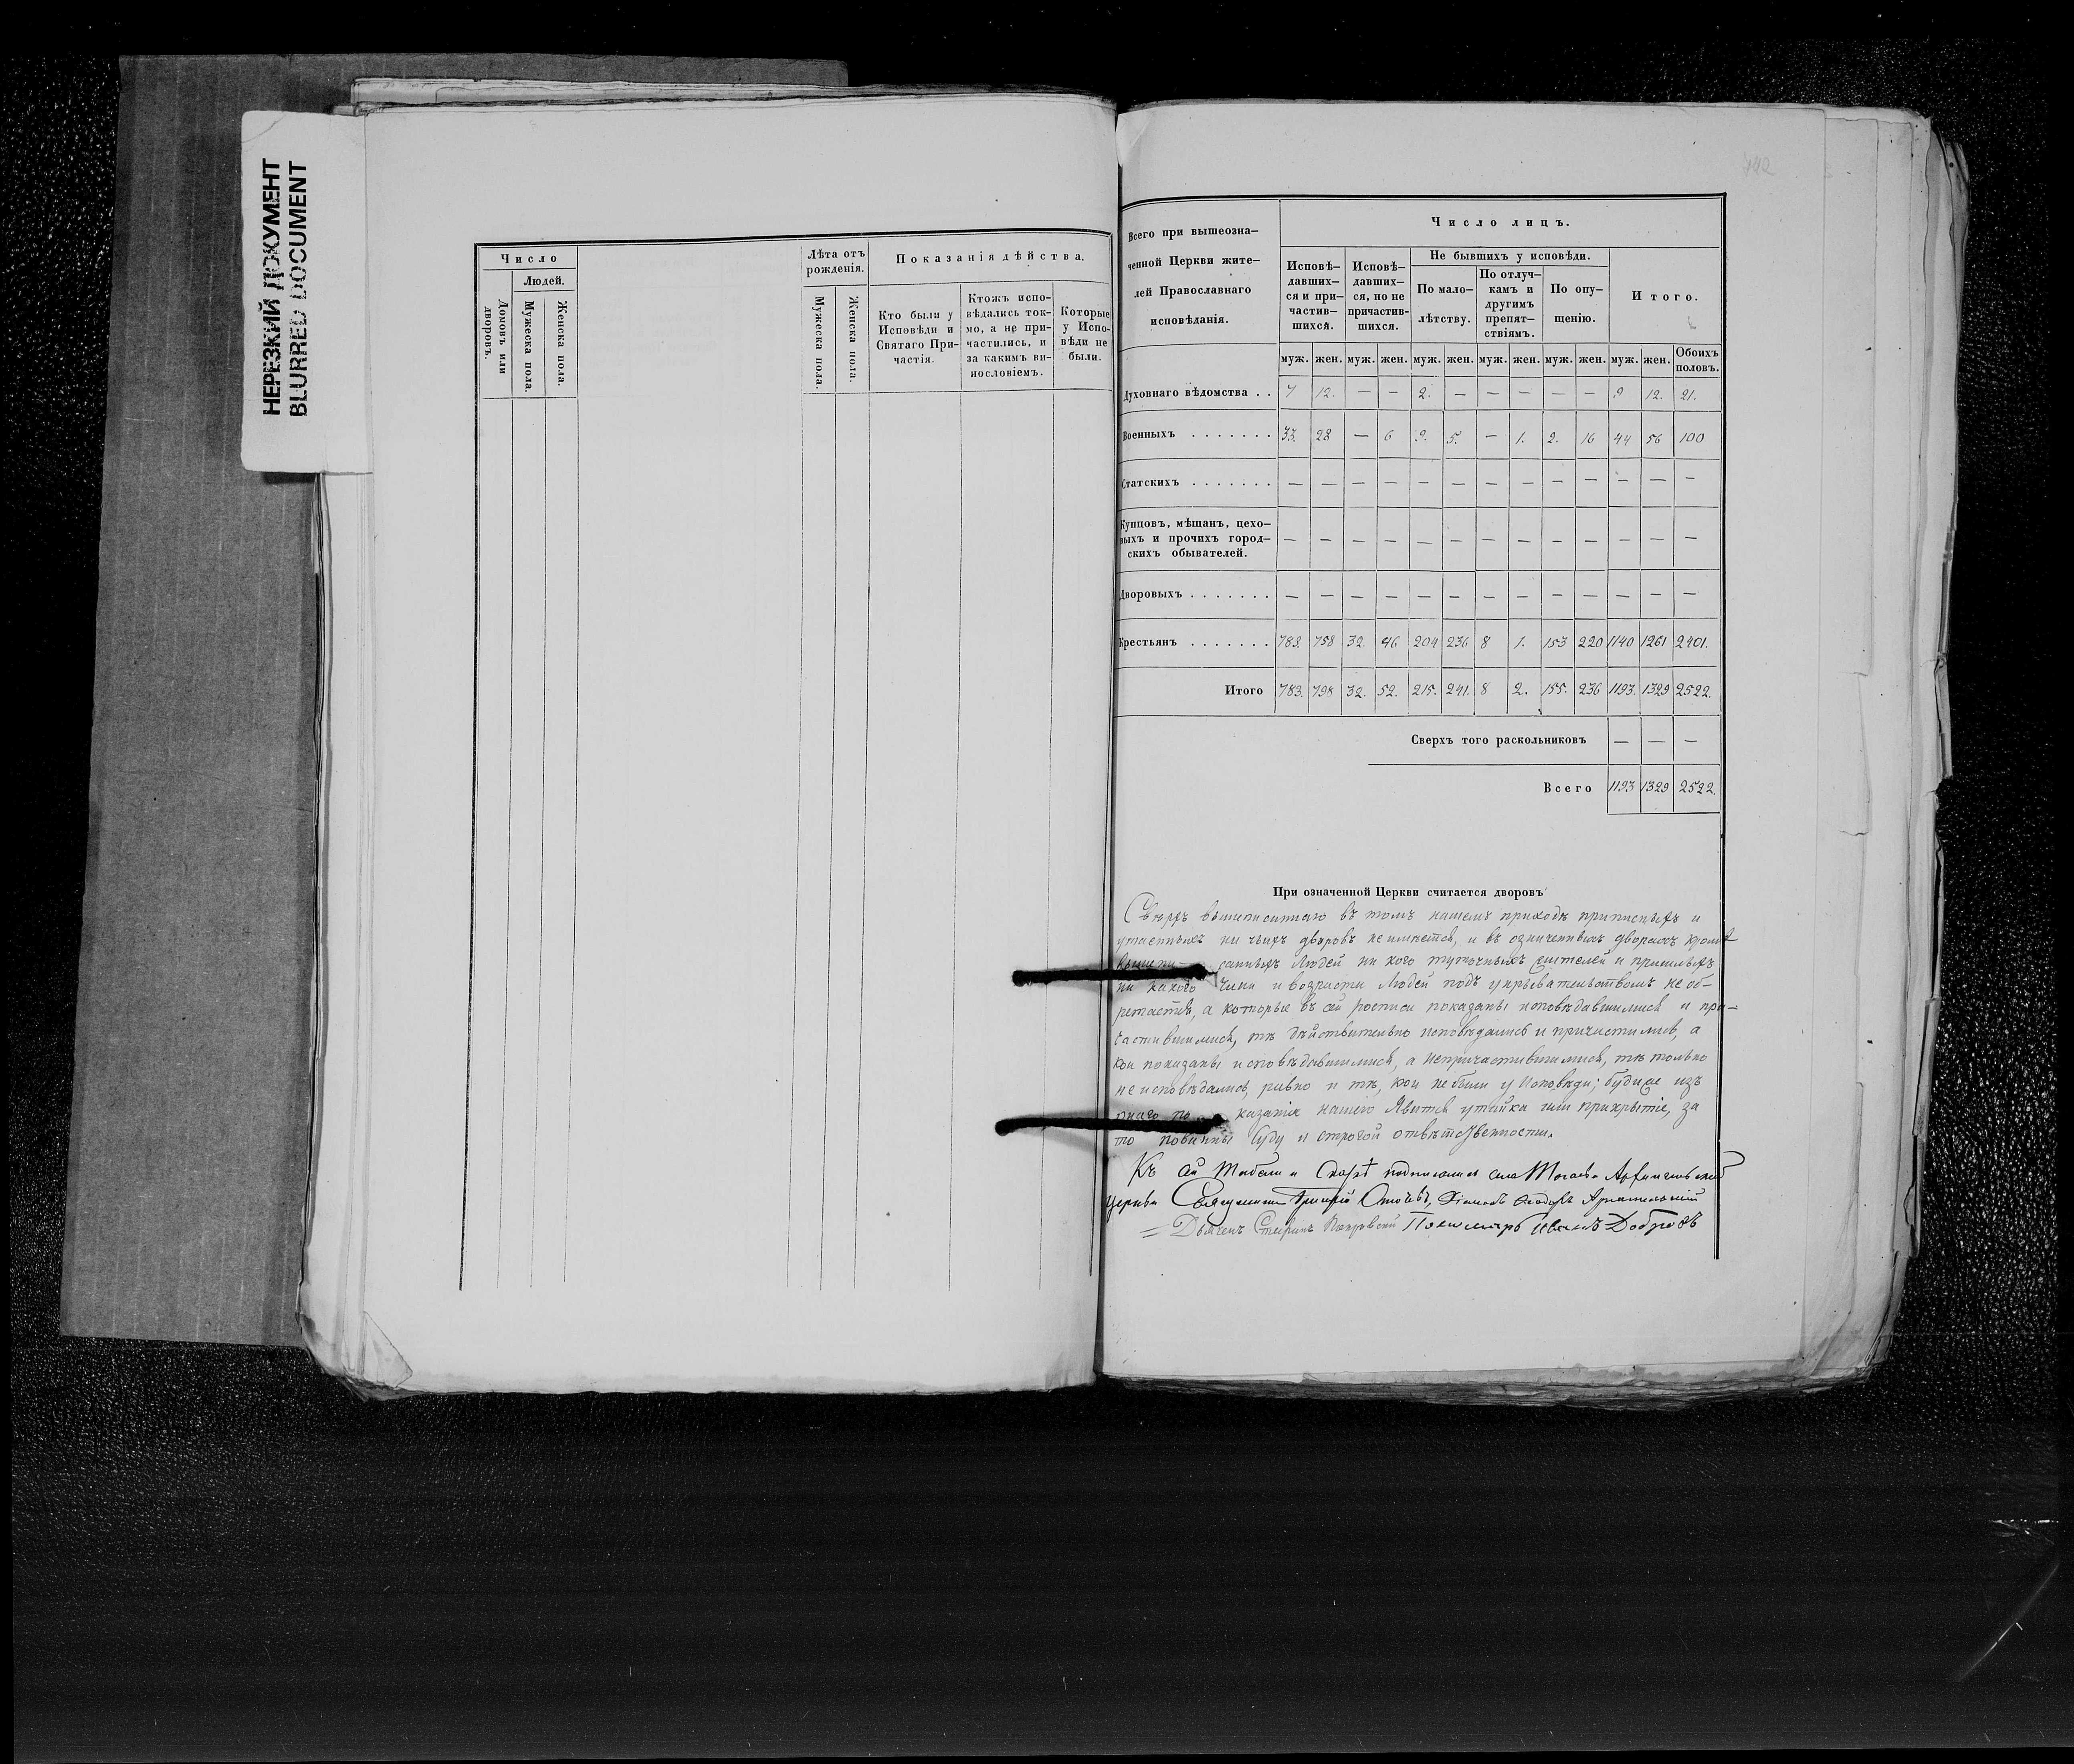 НЕРЕЗКИЙ ДОКУМЕНТ
BLURRED DOCUMENT
Число
Домовъ или дворовъ.
Людей.
Мужеска пола.
Женска пола.
Лѣта отъ рожденія.
Мужеска пола.
Женска пола.
Показанія дѣйства.
Кто были у Исповѣди и Святаго Причастія.
Ктожъ исповѣдались токмо, а не причастились, и за какимъ винословіемъ.
Которые у Исповѣди не были.
142
Всего при вышеозна-
ченной Церкви жите-
лей Православнаго
исповѣданія.
Число лицъ.
Исповѣ-давших-ся и при-частив-шихся.
Исповѣ-давших-ся, но не причастив-шихся.
Не бывшихъ у исповѣди.
По мало-лѣтству.
По отлуч-камъ и другимъ препят-ствіямъ.
По опу-щенію.
Итого.
муж. жен. муж. жен. муж. жен. муж. жен. муж. жен. муж. жен. Обоихъ половъ.
Духовнаго вѣдомства . . 7 12. — — 2. — — — — — 9 12. 21.
Военныхъ . . . . . . . 33. 28 — 6 9. 5. — 1. 2. 16 44 56 100
Статскихъ . . . . . . . — — — — — — — — — — — — —
Купцовъ, мѣщанъ, цехо-
выхъ и прочихъ город-
скихъ обывателей. — — — — — — — — — — — — —
Дворовыхъ . . . . . . . — — — — — — — — — — — — —
Крестьянъ . . . . . . . 783. 758 32. 46 204 236 8 1. 153 220 1140 1261 2401.
Итого 783. 798 32. 52. 215. 241. 8 2. 155. 236 1193. 1329 2522.
Сверхъ того раскольниковъ — — —
Всего 1193 1329 2522.
При означенной Церкви считается дворовъ
Сверхъ вышеписаннаго въ томъ нашемъ приходѣ приписныхъ и
ни чьихъ дворовъ не имѣется, и въ означенныхъ дворахъ кромѣ
вышепи санныхъ людей ни кого жителей и пришлыхъ
ни какого чина и возраста людей подъ укрывательствомъ не об-
ретается, а которые въ сей росписи показаны исповѣдавшимися и при-
частившимися, тѣ дѣйствительно исповѣдались и причастились, а
кои показаны исповѣдавшимися, а непричастившимися, тѣ только
не исповѣдались, равно и тѣ, кои не были у исповѣди; будеже изъ
по казанія нашего явится утайка или прикрытіе, за
то повинны суду и строгой отвѣтственности.
Къ сей подписались села
церкви Священникъ Григорій
Стефанъ Покровскій Пономарь Иванъ Добровъ